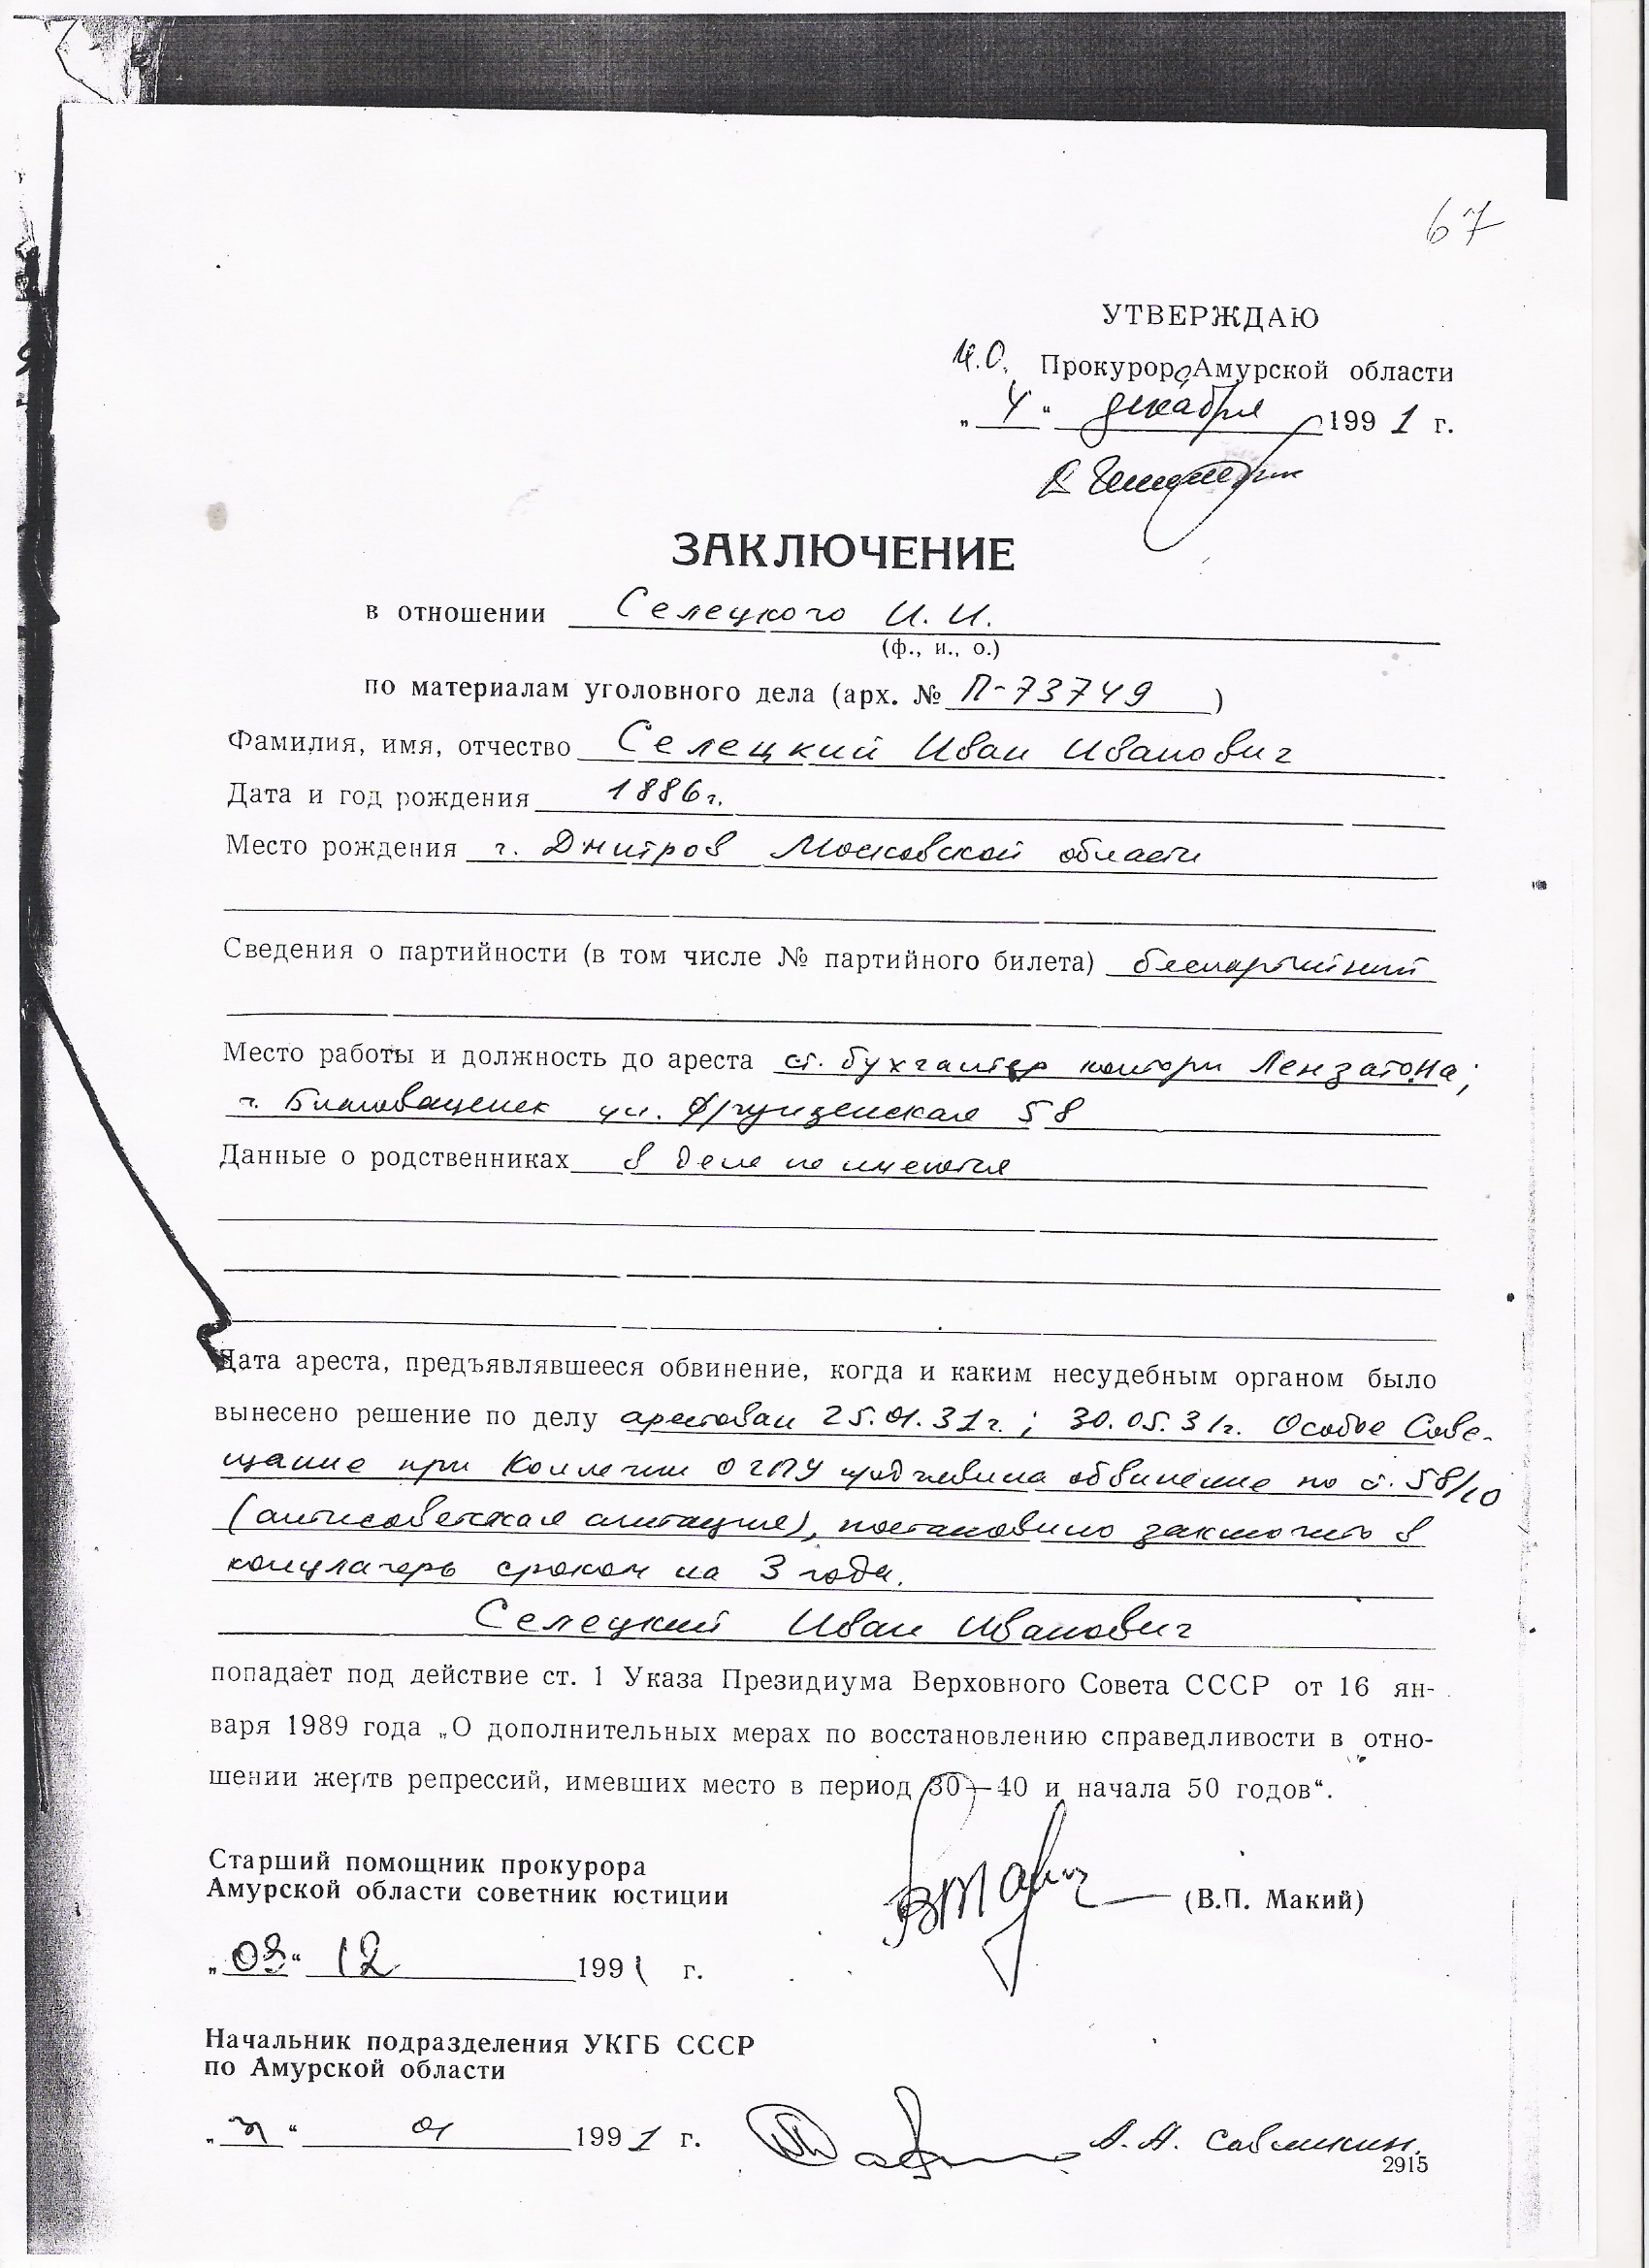 67
УТВЕРЖДАЮ
И.О. Прокурора Амурской области
„ 4 “ декабря 1991 г.
ЗАКЛЮЧЕНИЕ
в отношении Селецкого И. И.
(ф., и., о.)
по материалам уголовного дела (арх. № П-73749 )
Фамилия, имя, отчество Селецкий Иван Иванович
Дата и год рождения 1886 г.
Место рождения г. Дмитров Московской области
Сведения о партийности (в том числе № партийного билета) беспартийный
Место работы и должность до ареста ст. бухгалтер конторы Лензатона;
г. Благовещенск ул. Фрунзенская 58
Данные о родственниках в деле не имеются
Дата ареста, предъявлявшееся обвинение, когда и каким несудебным органом было
вынесено решение по делу арестован 25.01.31г.; 30.05.31г. Особое Сове-
щание при Коллегии ОГПУ предъявила обвинение по ст. 58/10
(антисоветская агитация), постановило заключить в
концлагерь сроком на 3 года.
Селецкий Иван Иванович
попадает под действие ст. 1 Указа Президиума Верховного Совета СССР от 16 ян-
варя 1989 года „О дополнительных мерах по восстановлению справедливости в отно-
шении жертв репрессий, имевших место в период 30—40 и начала 50 годов“.
Старший помощник прокурора
Амурской области советник юстиции
(В.П. Макий)
„ 03 “ 12 1991 г.
Начальник подразделения УКГБ СССР
по Амурской области
„ “ 01 1991 г.
А. А.
2915